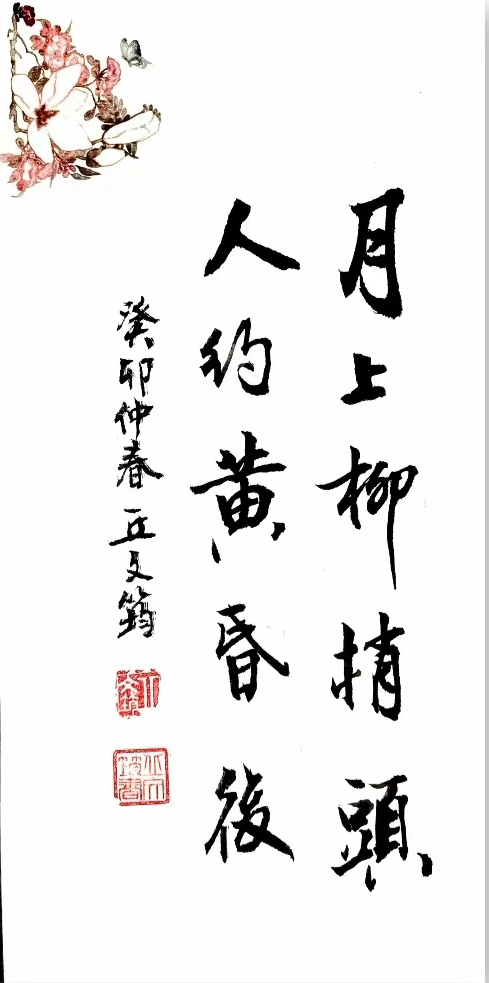 月上柳梢頭
人約黄昏後
癸卯仲春 丘文筠